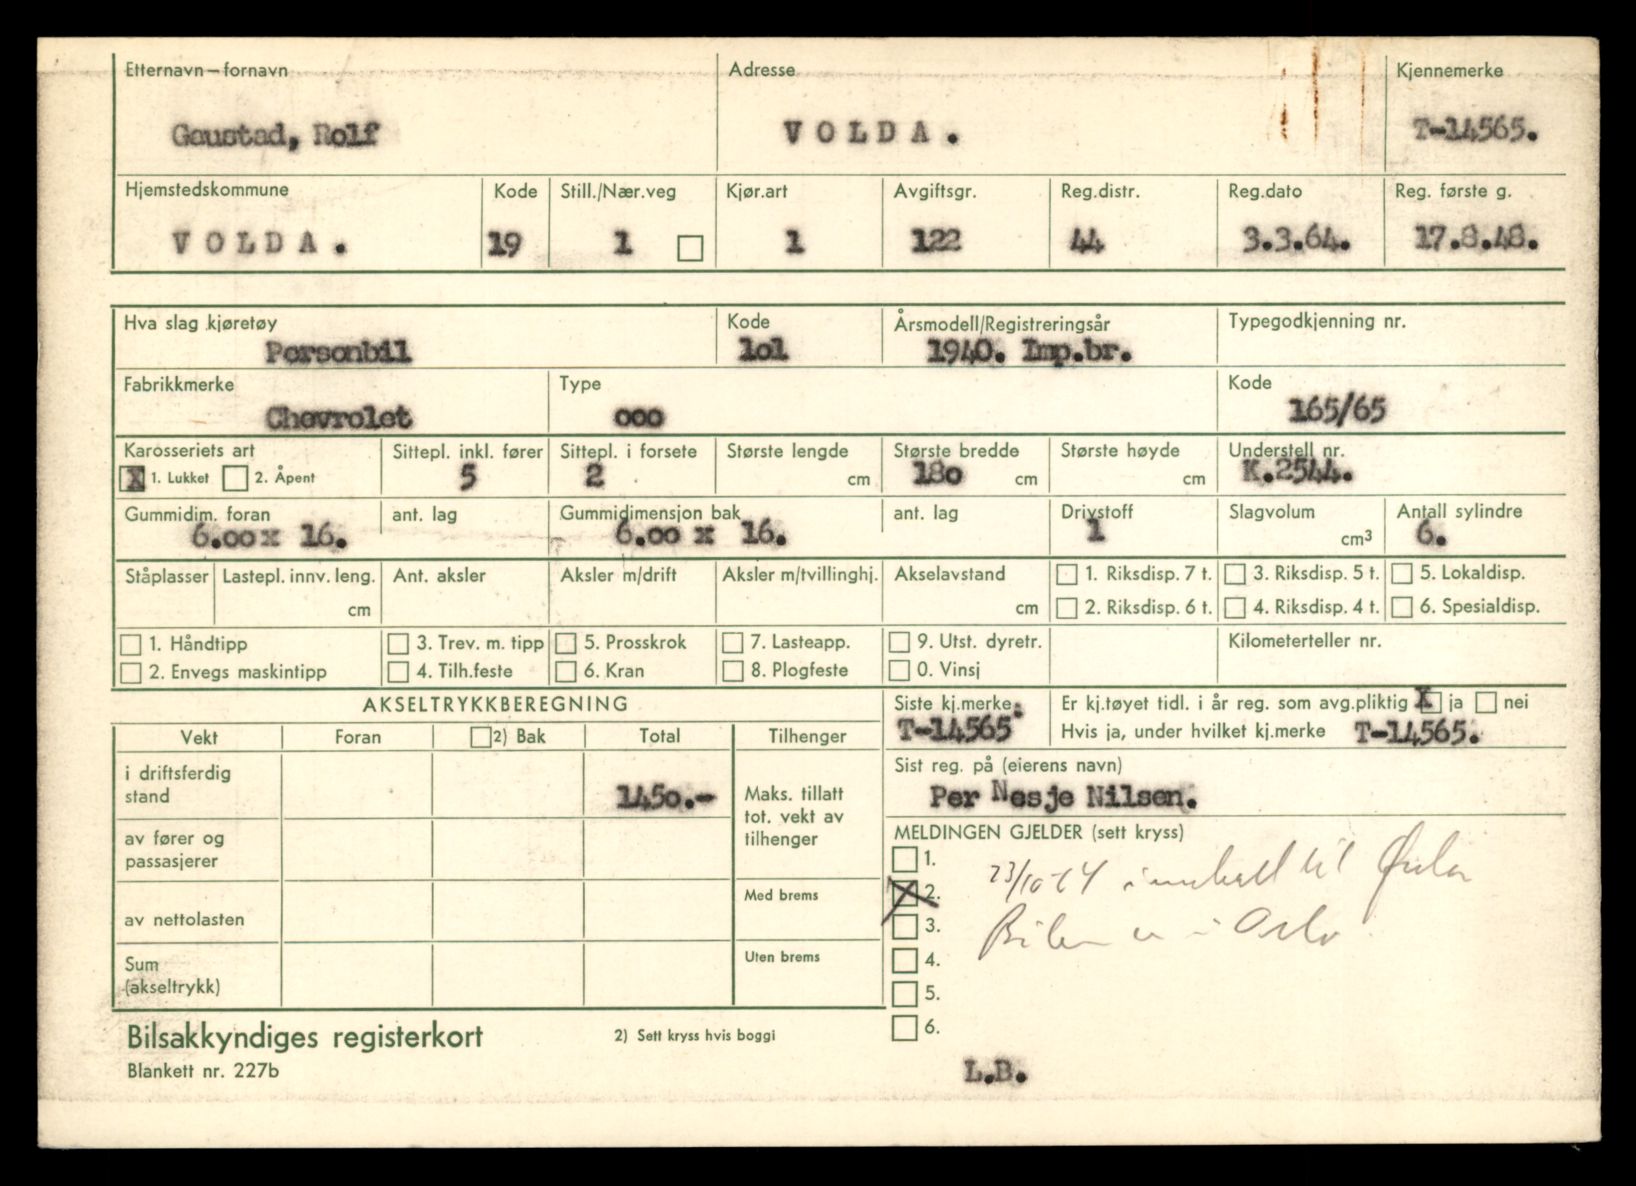 Etternavn—fornavn Adresse Kjennemerke
Gaustad, Rolf VOLDA. T-14565.
Hjemstedskommune Kode Still./Nær.veg Kjør.art Avgiftsgr. Reg.distr. Reg.dato Reg. første g.
VOLDA. 19 1 1 122 44 3.3.64. 17.8.48.
Hva slag kjøretøy Kode Årsmodell/Registreringsår Typegodkjenning nr.
Personbil lol 1940. Imp.br.
Fabrikkmerke Type Kode
Chevrolet ooo 165/65
Karosseriets art Sittepl. inkl. fører Sittepl. i forsete Største lengde Største bredde Største høyde Understell nr.
X 1. Lukket 2. Åpent 5 2 cm 180 cm cm K.2544.
Gummidim. foran ant. lag Gummidimensjon bak ant. lag Drivstoff Slagvolum Antall sylindre
6.oo x 16. 6.oo x 16. 1 cm³ 6.
Ståplasser Lastepl. innv. leng. Ant. aksler Aksler m/drift Aksler m/tvillinghj. Akselavstand 1. Riksdisp. 7 t. 3. Riksdisp. 5 t. 5. Lokaldisp.
cm cm 2. Riksdisp. 6 t. 4. Riksdisp. 4 t. 6. Spesialdisp.
1. Håndtipp 3. Trev. m. tipp 5. Prosskrok 7. Lasteapp. 9. Utst. dyretr. Kilometerteller nr.
2. Envegs maskintipp 4. Tilh.feste 6. Kran 8. Plogfeste 0. Vinsj
AKSELTRYKKBEREGNING Siste kj.merke: Er kj.tøyet tidl. i år reg. som avg.pliktig X ja nei
Vekt Foran 2) Bak Total Tilhenger T-14565 Hvis ja, under hvilket kj.merke T-14565.
i driftsferdig stand 1450.- Sist reg. på (eierens navn)
Maks. tillatt tot. vekt av tilhenger Per Nesje Nilsen.
av fører og passasjerer MELDINGEN GJELDER (sett kryss)
1.
av nettolasten Med brems X 2.
3. Bilen er i Oslo
Sum (akseltrykk) Uten brems 4.
5.
Bilsakkyndiges registerkort 2) Sett kryss hvis boggi 6.
Blankett nr. 227b L.B.